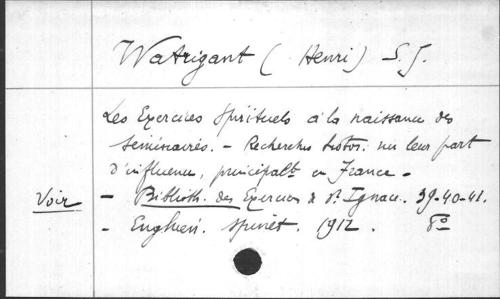 Watrigant ( Henri) S. J.
Les Exercices spirituels à la naissance des
séminaires. - Recherches histor. sur leur part
d'influence, principalt en France -
Voir - Biblioth. des Exercices de St. Ignace. 39-40-41.
- Enghien. Spinet. 1912. 8º